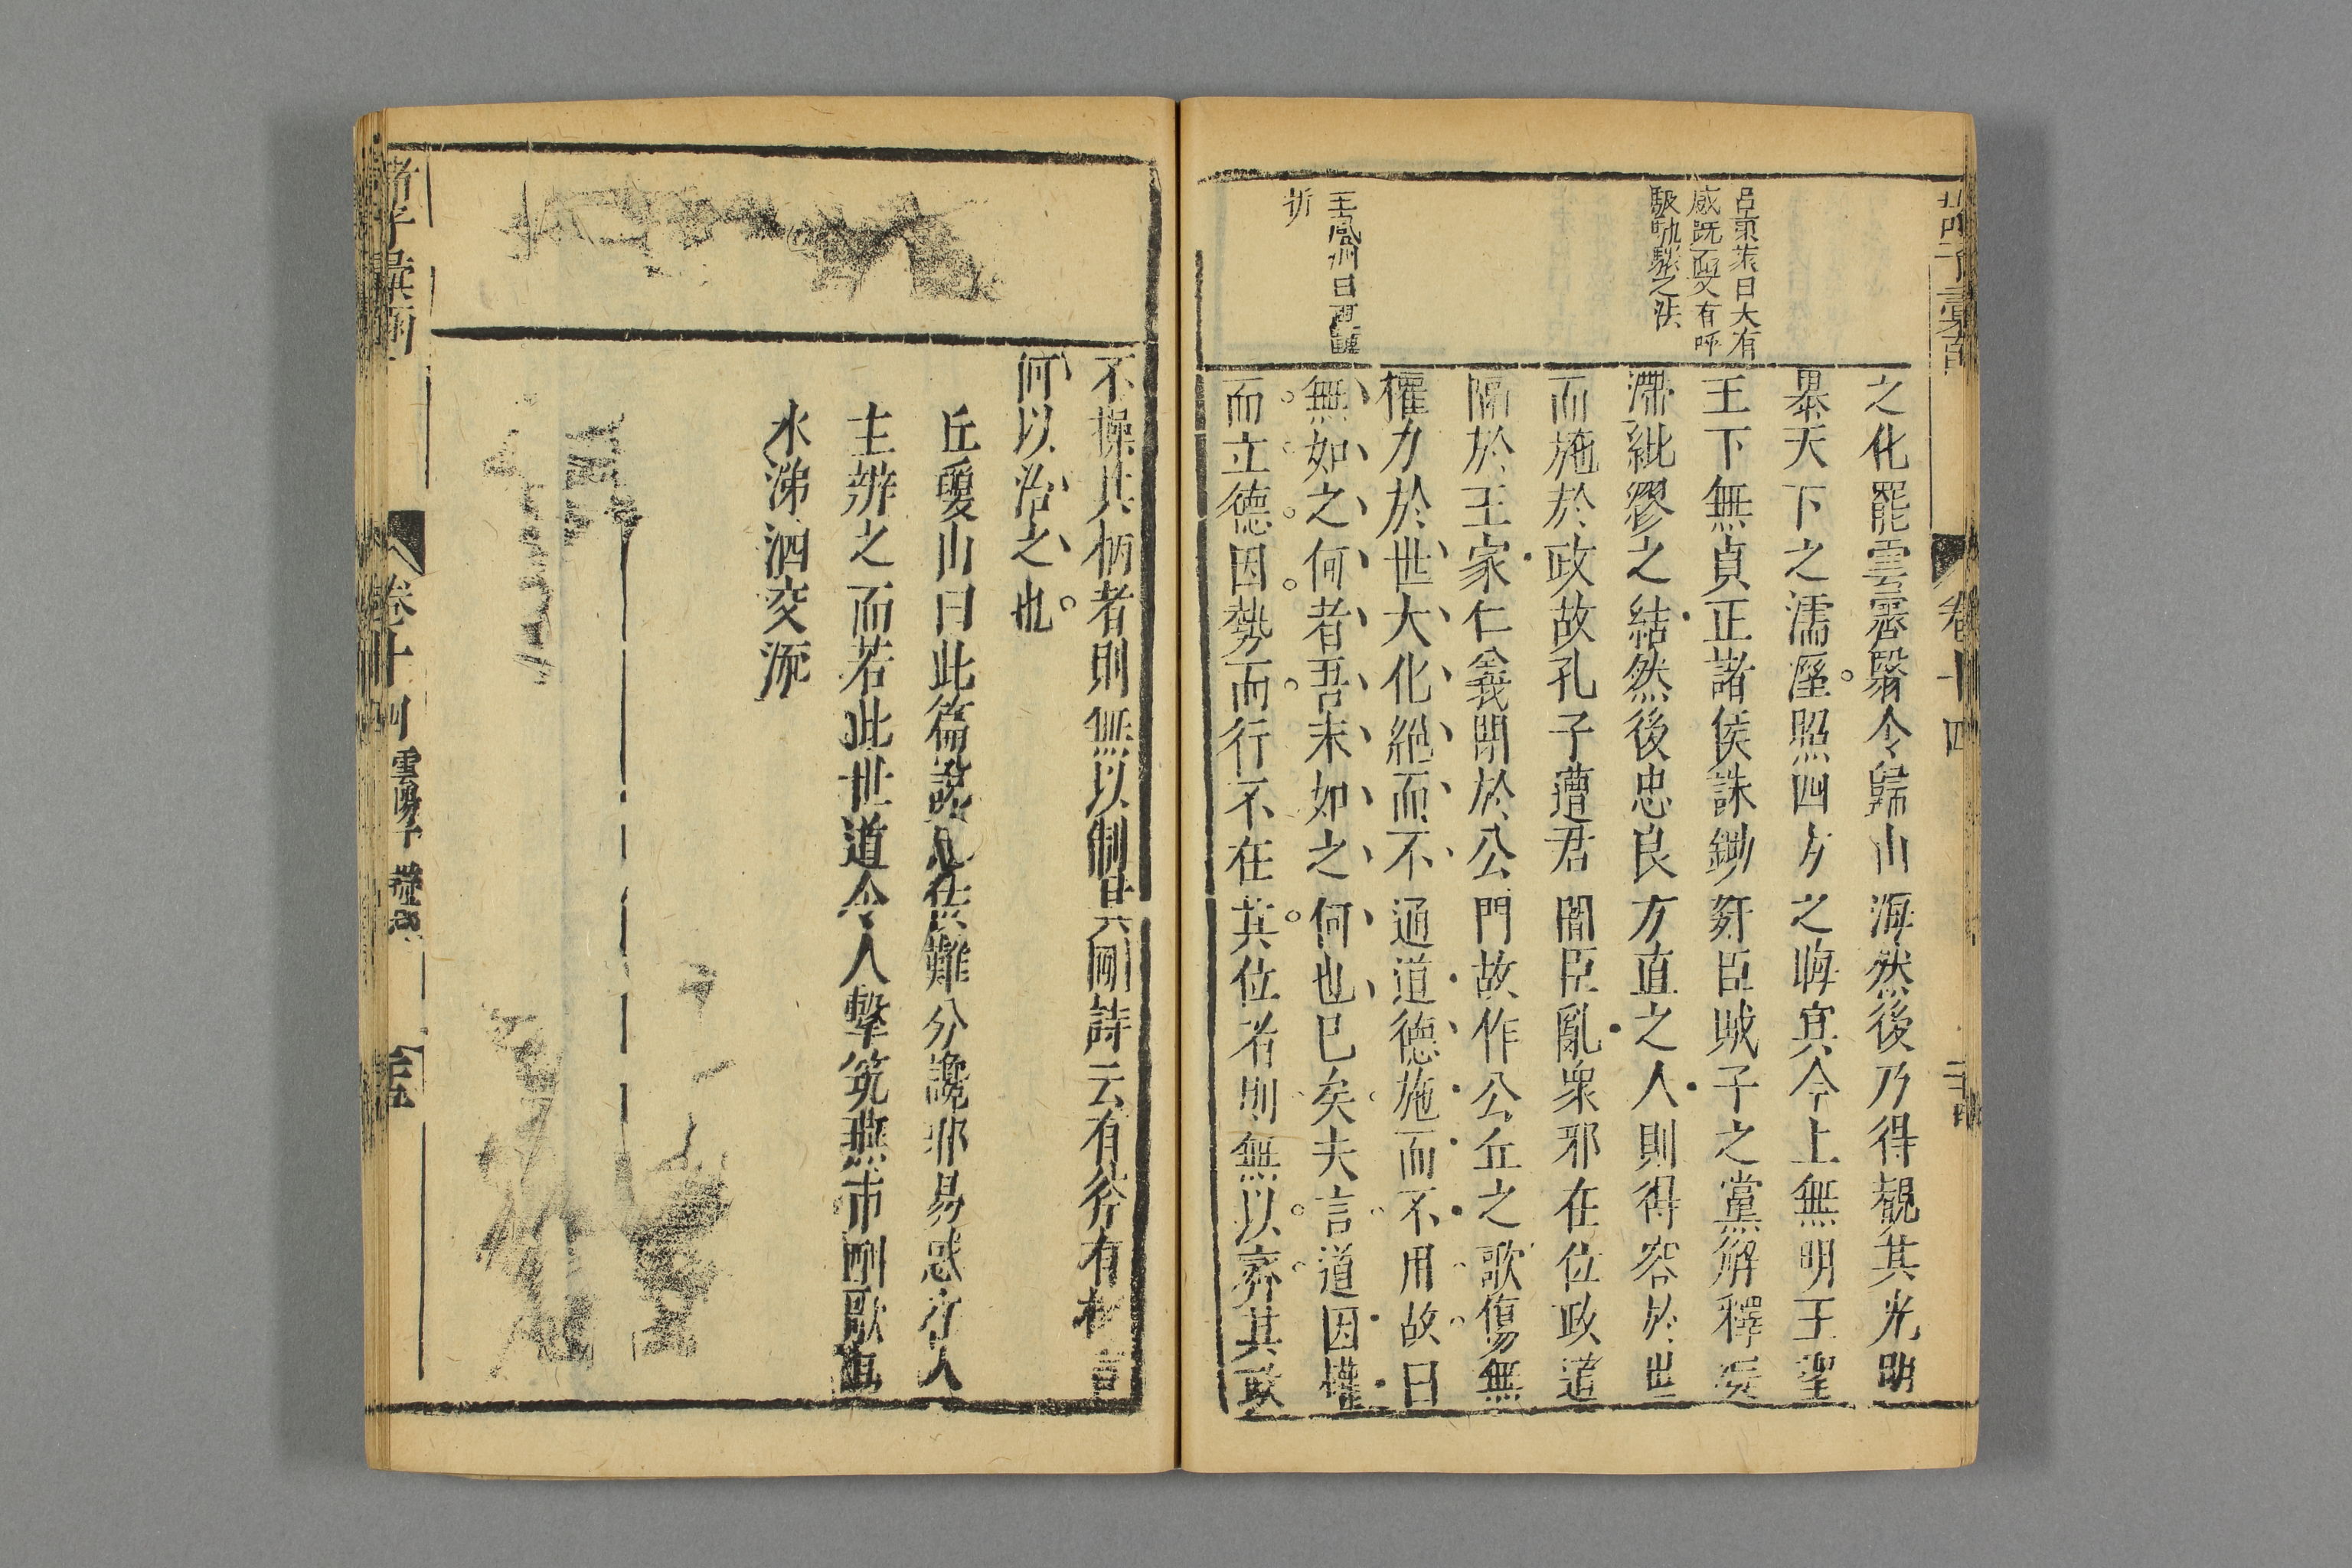 呂東萊曰大有
感既而又有呼
駿馭之法
王鳳洲曰
折
之化罷雲霧翳令歸山海然後乃得觀其光明
暴天下之濡溼照四方之晦冥今上無明王聖
王下無貞正諸侯誅鋤奸臣賊子之黨解釋疑
滯紕繆之結然後忠良方直之人則得容於世
而施於政故孔子遭君闇臣亂衆邪在位政道
隔於王家仁義閉於公門故作公丘之歌傷無
權力於世大化絕而不通道德施而不用故曰
無如之何者吾末如之何也已矣夫言道因權
而立德因勢而行不在其位者則無以齊其政
卷十四
不操其柄者則無以制其剛詩云有斧有柯言
何以治之也
丘瓊山曰此篇說 佞難分讒邪易惑 人
主辨之而若此世道令人擊筑燕市酣歌
水涕泗交
卷十四 雲陽子